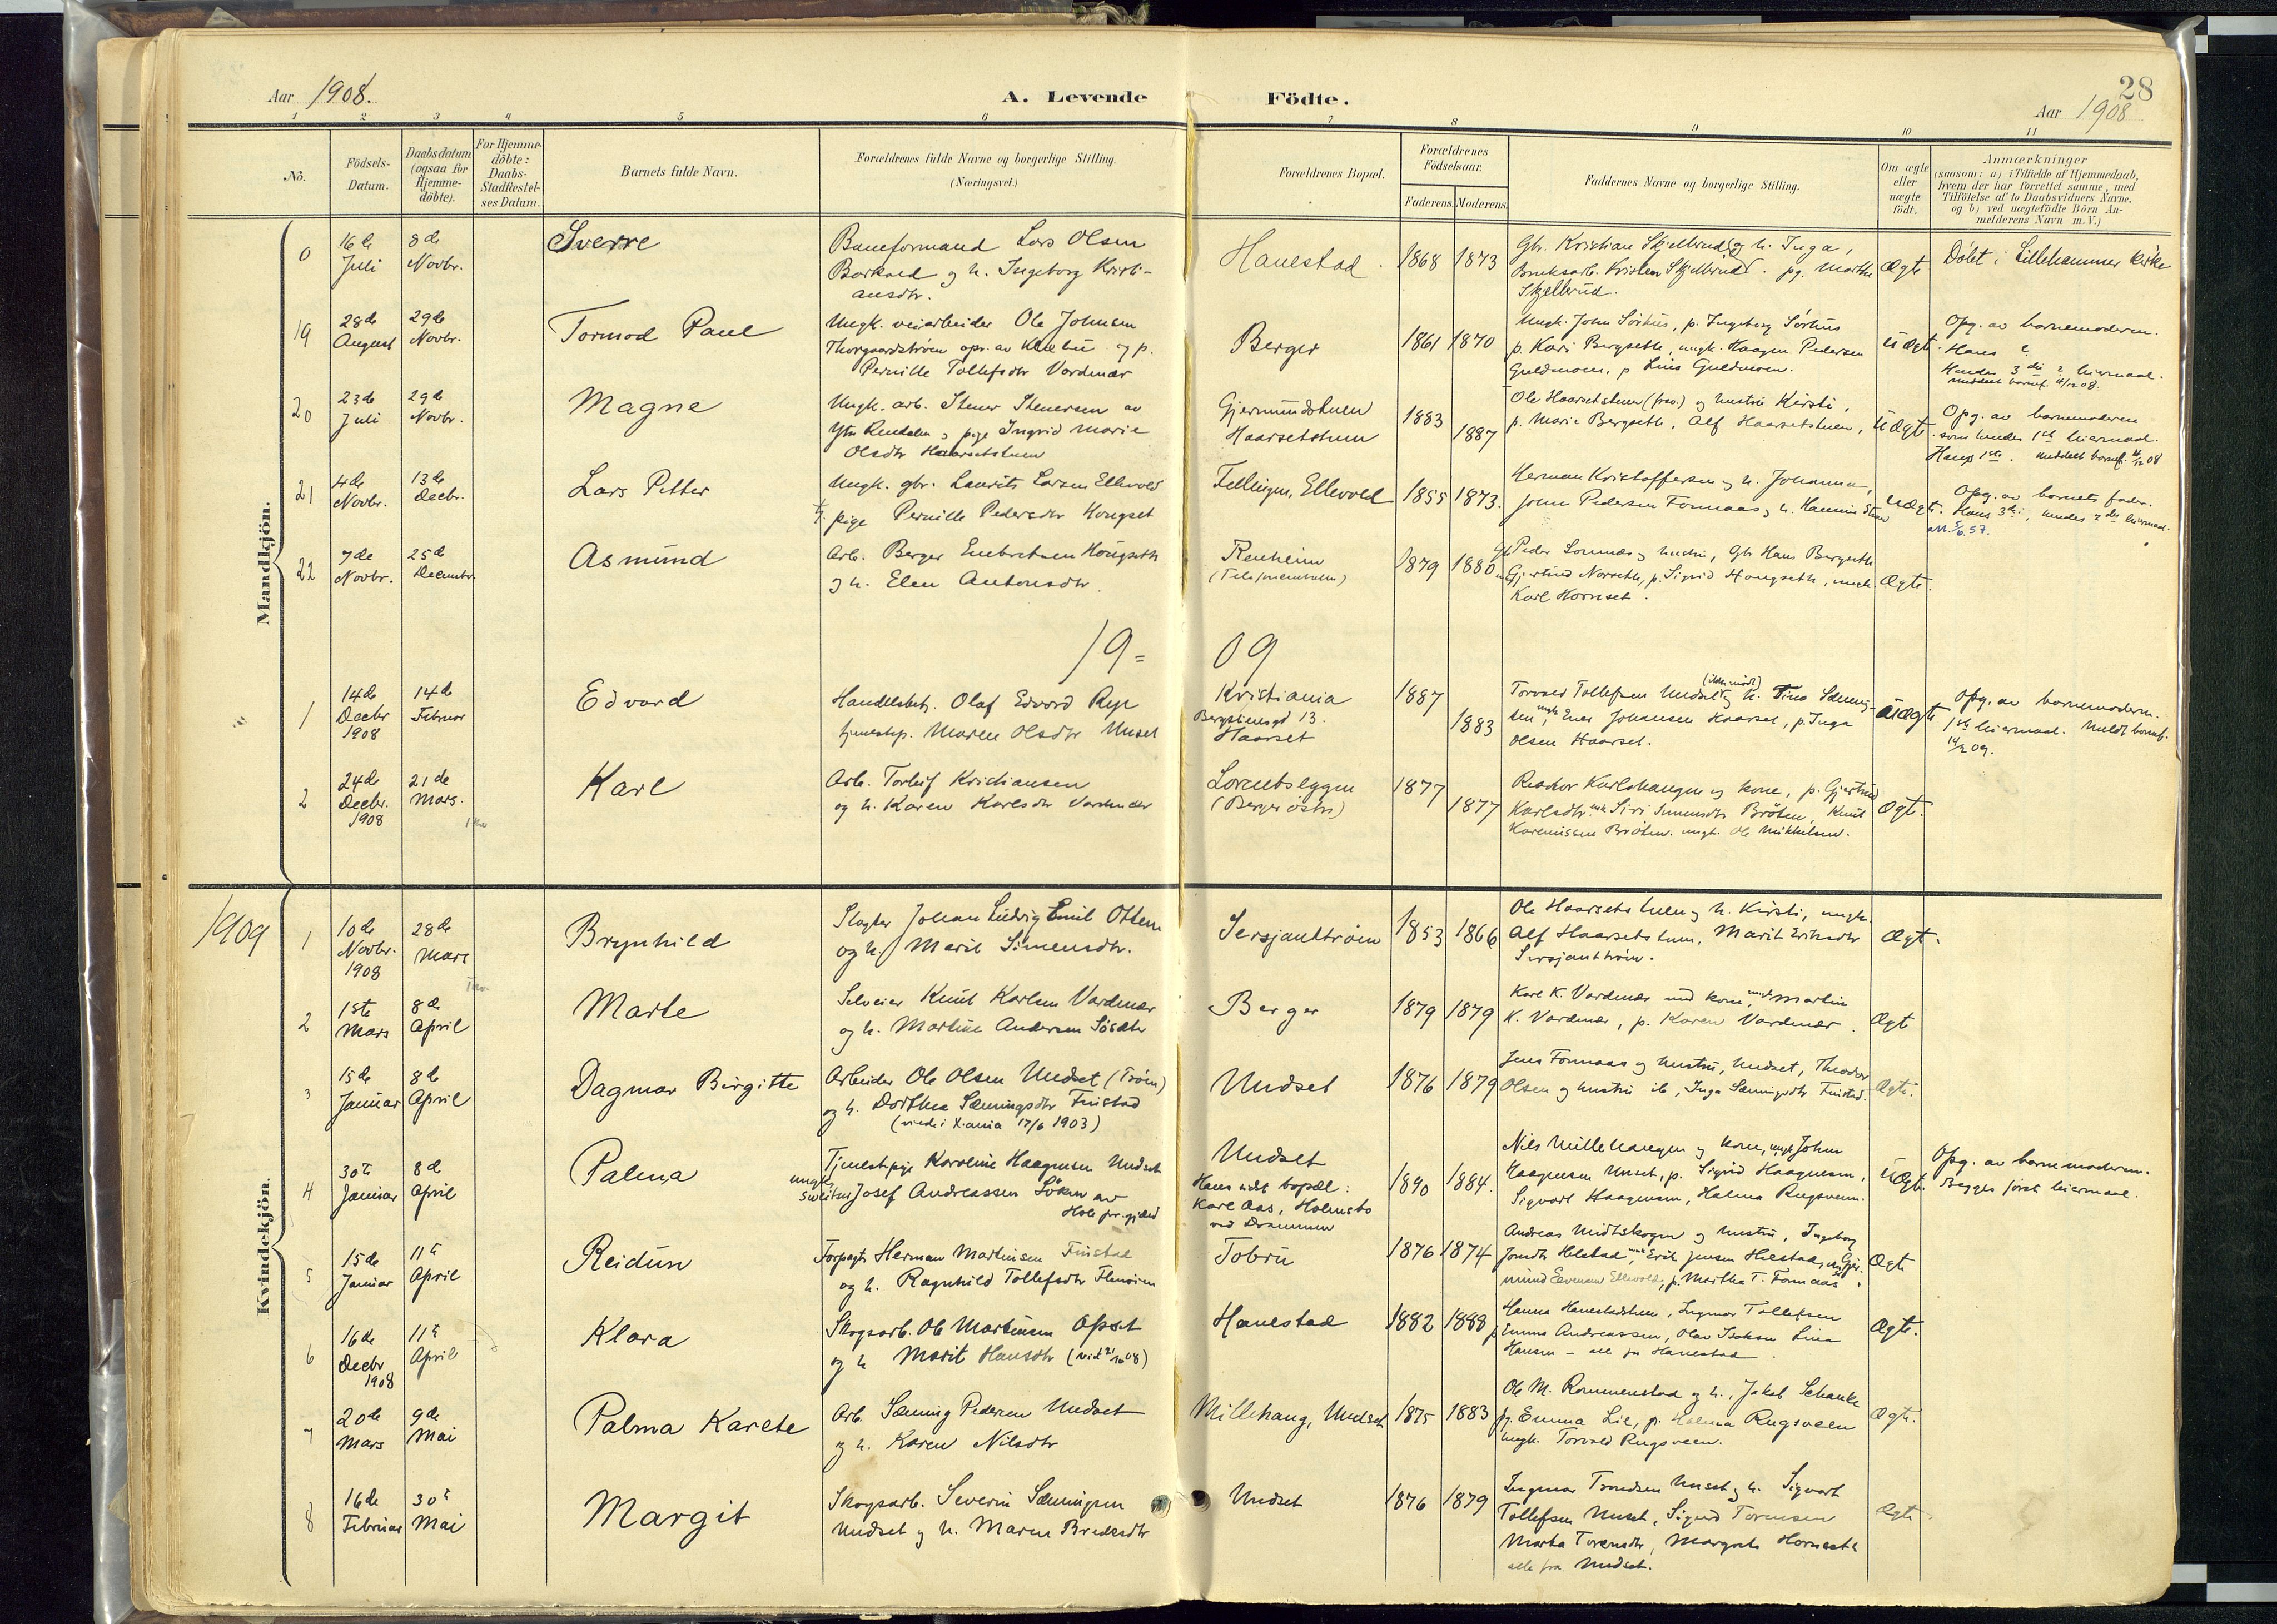 28
Aar 1908.
A. Levende Födte.
Aar 1908
1 2 3 4 5 6 7 8 9 10 11
No.
Födsels-
Datum.
Daabsdatum
(ogsaa for
Hjemme-
döbte).
For Hjemme-
döbte:
Daabs-
Stadfæstel-
ses Datum.
Barnets fulde Navn.
Forældrenes fulde Navne og borgerlige Stilling.
(Næringsvei.)
Forældrenes Bopæl.
Forældrenes
Födselsaar.
Faderens. Moderens.
Faddernes Navne og borgerlige Stilling.
Om ægte
eller
uægte
födt.
Anmærkninger
(saasom: a) i Tilfælde af Hjemmedaab,
hvem der har forrettet samme, med
Tilföielse af to Daabsvidners Navne.
og b) ved uægtefödte Börn An-
melderens Navn m. V.)
Mandkjön.
0
16de
Juli
8de
Novbr.
Sverre
Baneformand Lars Olsen
Borkved og h. Ingeborg Kristi-
ansdtr.
Hanestad.
1868 1873
Gbr. Kristian Skjellerud og h. Inga,
Bruksarb. Kristen Skjellerud. pg. Marthe
Skjellerud.
Ægte
Döbt i Lillehammer kirke
19
28de
August
29de
Novbr.
Tormod Paul
Ungk. veiarbeider Ole Johnsen
Thorgaardströen opr. av Klæbu og p.
Pernille Tollefsdtr Vardenær
Berger
1861 1870
Ungk. John Sörhus, p. Ingeborg Sörhus
p. Kari Bergseth, ungk. Haagen Pedersen
Guldmoen, p Lina Guldmoen.
Uægte.
Opg. av barnemoderen.
Hans 2.
Hendes 3die leiermaal.
20
23de
Juli
29de
Novbr.
Magne
Ungk. arb. Stener Stenersen av
Ytre Rendalen og pige Ingrid Marie
Olsdtr Haarsetstuen
Gjermundstuen
Haarsetstuen
1883
1887
Ole Haarsetstuen (frav.) og hustru Kirsti,
p. Marie Bergseth, Alf Haarsetstuen,
Uægte.
Opg. av barnemoderen
som hendes 1ste leiermaal.
Hans 1ste.
21
4de
Novbr.
13de
Decbr.
Lars Petter
Ungk. gbr. Laurits Larsen Ellevold
og pige Pernille Pedersdtr Hongset
Fellingen, Ellevold
1855 1873.
Herman Kristoffersen og h. Johanna,
John Pedersen Formaas og h.
Uægte.
Opg. av barnets fader.
Hans 3die, hendes 2den leiermaal.
22
7de
Novbr.
25de
Decembr.
Asmund
Arb. Berger Embretsen Hongseth
og h. Elen Antonsdtr.
Renheim
1879 1880
Peder Lomnes og hustru, Gbr Hans Bergseth
Gjertrud Norseth, p. Sigrid Hongseth, ungk
Karl Hornset.
Ægte.
19=09
1
14de
Decbr
1908
14de
Februar
Edvard
Handelsbetj. Olaf Edvard Rye
tjenestep. Maren Olsdtr Unset
Kristiania
Bergsliensgd 13.
Haarset
1887
1883
Torvald Tollefsen Undset og h. Tina Sæming-
sen, Enar Johansen Haarset, p. Inga
Olsen Haarset.
Uægte
Opg. av barnemoderen.
1ste leiermaal.
14/2 09.
2
24de
Decbr.
1908
21de
Mars.
Karl
Arb. Torleif Kristiansen
og h. Karen Karlsdtr Vardenær
Lorentseggen
(Berger östre)
1877
1877
Reodor Karlshaugen og kone, p. Gjertrud
Karlsdtr. Siri Simensdtr Bröten, Knut
Bröten. ungk. Ole Mikkelsen.
Ægte.
Kvindekjön.
1909
1
10de
Novbr.
1908
28de
Mars
Brynhild
Slagter Johan Ludvig Emil Ottem
og h. Marit Simensdtr.
Sersjantströen
1853 1866
Ole Haarsetstuen og h. Kirsti, ungk.
Alf Haarsetstuen, Marit Eriksdtr
Sersjantströen.
Ægte.
2
1ste
Mars
8de
April
Marte
Selveier Knut Karlsen Vardenær
og h. Martine Andersen Söseter
Berger
1879 1879
Karl K. Vardenær med kone, ungk Martin
K. Vardenær, p. Karen Vardenær.
Ægte
3
15de
Januar
8de
April
Dagmar Birgitte
Arbeider Ole Olsen Undset (Tröen)
og h. Dorthea Sæmingsdtr Finstad
(viede i X.ania 17/6 1903)
Undset
1876 1879
Jens Formaas og hustru, Undset, Theodor
Olsen og hustru ib, Inga Sæmingsdtr Finstad.
Ægte.
4
30te
Januar
8de
April
Palma
Tjenestepige Karoline Haagensen Undset
ungk. Josef Andreassen Löken av
Hole pr.gjeld
Undset
Hans sidste bopæl:
Karl Aas, Holmsbo
ved Drammen
1890 1884.
Nils Millehaugen og kone, ungk John
Haagensen Unset, p. Sigrid Haagensen,
Sigvart Haagensen, Halma Rugsveen.
Uægte.
Opg. av barnemoderen.
Begges förste leiermaal.
5
15de
Januar
11te
April
Reidun
Forpagter Herman Martinsen Finstad
og h. Ragnhild Tollefsdtr
Tobru
1876 1874
Andreas Midtskogen og hustru, Ingeborg
Jonsdtr Helstad, Erik Jensen Helstad, ungk. Gjer-
mund Evensen Ellevold, p. Martha T. Formaas.
Ægte
6
16de
Decbr
1908
11te
April
Klara
Skogsarb. Ole Martinsen Opset
og h Marit Hansdtr
Hanestad
1882 1888
Hanna Hanestadstuen, Ingmar Tollefsen
p Emma Andreassen, Olav Isaksen Lina
Hansen - alle fra Hanestad.
Ægte.
7
20de
Mars
9de
Mai
Palma Karete
Arb. Sæming Pedersen Undset
og h. Karen Nilsdtr
Millehaug, Undset
1875 1883
Ole M. Rommenstad og h., Jakob Schanke
pg. Emma Lie, p. Halma Rugsveen
ungk. Torvald Rugsveen.
Ægte.
8
16de
Februar
30te
Mai
Margit
Skogsarb. Severin Sæmingsen
Undset og h. Maren Bredesdtr
Undset
1876 1879
Ingmar Trondsen Unset og h. Sigvart
Tollefsen Unset, Sigurd Torensen
Marta Torensdtr, Margrete Hornseth
alle fra Undset.
Ægte